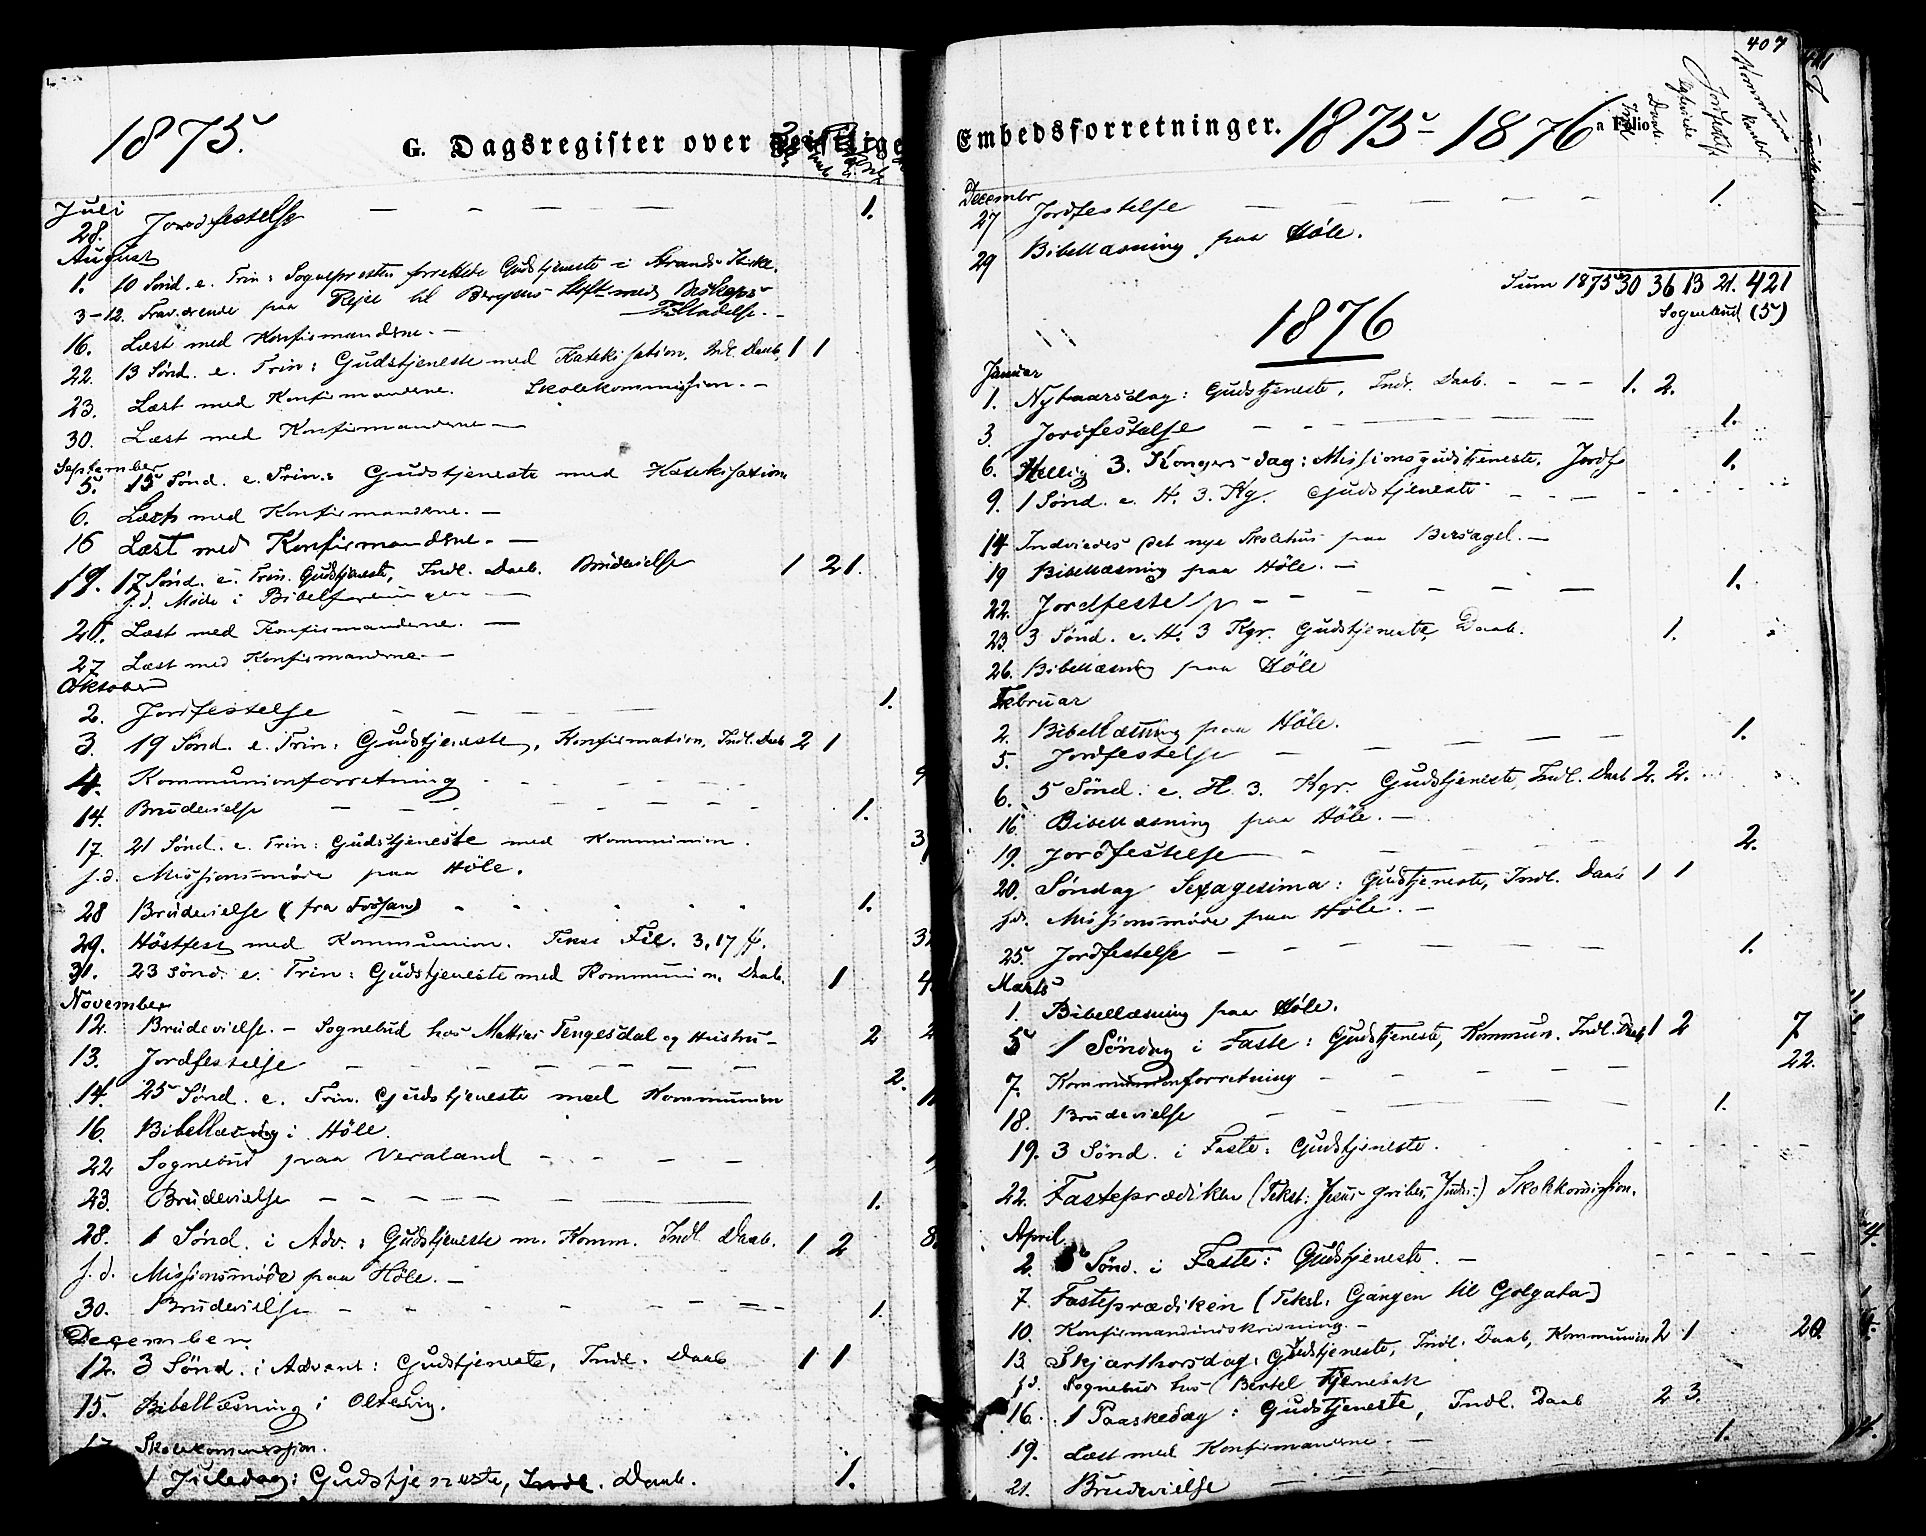 1875.
G. Dagsregister over Geistlige
Juli
28. Jordfestelse — — — — — 1.
August
1. 10 Sønd. e. Trin: Sognepresten forrettede Gudstjeneste i Strands Kirke.
3-12. Fraværende paa Rejse til Bergens Stift med Biskops
Tilladelse. —
16. Læst med Konfirmanderne. —
22. 13 Sønd. e. Trin: Gudstjeneste med Katekisation, Indl. Daab, 1 1
23. Læst med Konfirmanderne. Skolekommission. —
30. Læst med Konfirmanderne —
September
5. 15 Sønd. e. Trin: Gudstjeneste med Katekisation
6. Læst med Konfirmanderne. —
16 Læst med Konfirmanderne. —
19. 17 Sønd. e. Trin. Gudstjeneste, Indl. Daab. Brudevielse 1 2 1.
s. d. Møde i Bibelforeningen —
20. Læst med Konfirmanderne. —
27 Læst med Konfirmanderne. —
Oktober
2. Jordfestelse — — — — — 1.
3. 19 Sønd. e. Trin: Gudstjeneste, Konfirmation, Indl. Daab 2 1
4. Kommunionforretning — — — 9
14. Brudevielse — — — — 1.
17. 21 Sønd. e. Trin: Gudstjeneste med Kommunion. 3
s. d. Missionsmøde paa Höle.
28 Brudevielse (fra Fossan) 1.
29. Höstfest med Kommunion. Text Fil. 3, 17 ff. 3
31. 23 Sønd. e. Trin: Gudstjeneste med Kommunion, Daab. 1 4
November
12. Brudevielse. — Sognebud hos Mathias Tengesdal og Hustru — 2 2
13. Jordfestelse — — — — — 2.
14. 25 Sønd. e. Trin. Gudstjeneste med Kommunion 1
16. Bibellæsning i Höle.
22 Sognebud paa Veraland — — —
23. Brudevielse — — — — 1.
28. 1 Sønd. i Adv.: Gudstjeneste m. Komm. Indl. Daab. 1 2 8
s. d. Missionsmøde paa Höle. —
30. Brudevielse — — — — 1.
December
12. 3 Sønd. i Advent: Gudstjeneste, Indl. Daab 1 1
15. Bibellæsning i Oltedvig.
17. Skolekommission.
1 Juledag: Gudstjeneste, Indl. Daab. 1.
407
Embedsforretninger. 1875 - 1876
Indl. Daab. Jordfestelse
Decembr
27 Jordfestelse — — — — — 1.
29 Bibellæsning paa Höle.
Sum 1875 30 36 13 21. 421
Sognebud (5)
1876
Januar
1. Nytaarsdag: Gudstjeneste, Indl. Daab. — — — 1. 2.
3. Jordfestelse — — — — 1.
6. Hellig 3. Kongers-dag: Missionsgudstjeneste. Jordf. 1.
9. 1 Sønd. e. H. 3. Kg. Gudstjeneste — — —
14 Indviedes det nye Skolehus paa Bersagel. —
19 Bibellæsning paa Höle. —
22. Jordfestelse — — — — 1.
23. 3 Sønd. e. H. 3 Kgr. Gudstjeneste, Daab. 1.
26. Bibellæsning paa Höle
Februar
2. Bibellæsning paa Höle.
5. Jordfestelse — — — — 1.
6. 5 Sønd. e. H. 3. Kgr. Gudstjeneste, Indl. Daab 2. 2.
16. Bibellæsning paa Höle. —
19. Jordfestelse — — — — 2.
20. Søndag Sexagesima: Gudstjeneste, Indl. Daab 1 1
s. d. Missionsmøde paa Höle. —
25. Jordfestelse — — — — 1.
Marts
1. Bibellæsning paa Höle.
5 1 Söndag i Faste: Gudstjeneste, Kommun. Indl. Daab 1 2 7
7. Kommunionforretning — — — — 22.
18. Brudevielse — — — — 1.
19. 3 Sönd. i Faste: Gudstjeneste.
22. Fasteprædiken (Tekst: Jesus gribes, Judas.) Skolekommission.
April.
2. 5 Sønd. i Faste: Gudstjeneste. —
7. Fasteprædiken (Tekst: Gangen til Golgata)
10. Konfirmandindskrivning. —
13. Skjærthorsdag: Gudstjeneste, Indl. Daab, Kommunion 2 1 20.
s. d. Sognebud hos Bertel
16. 1 Paaskedag: Gudstjeneste, Indl. Daab 2 3.
19. Læst med Konfirmanderne — —
21. Brudevielse — — — — 1.